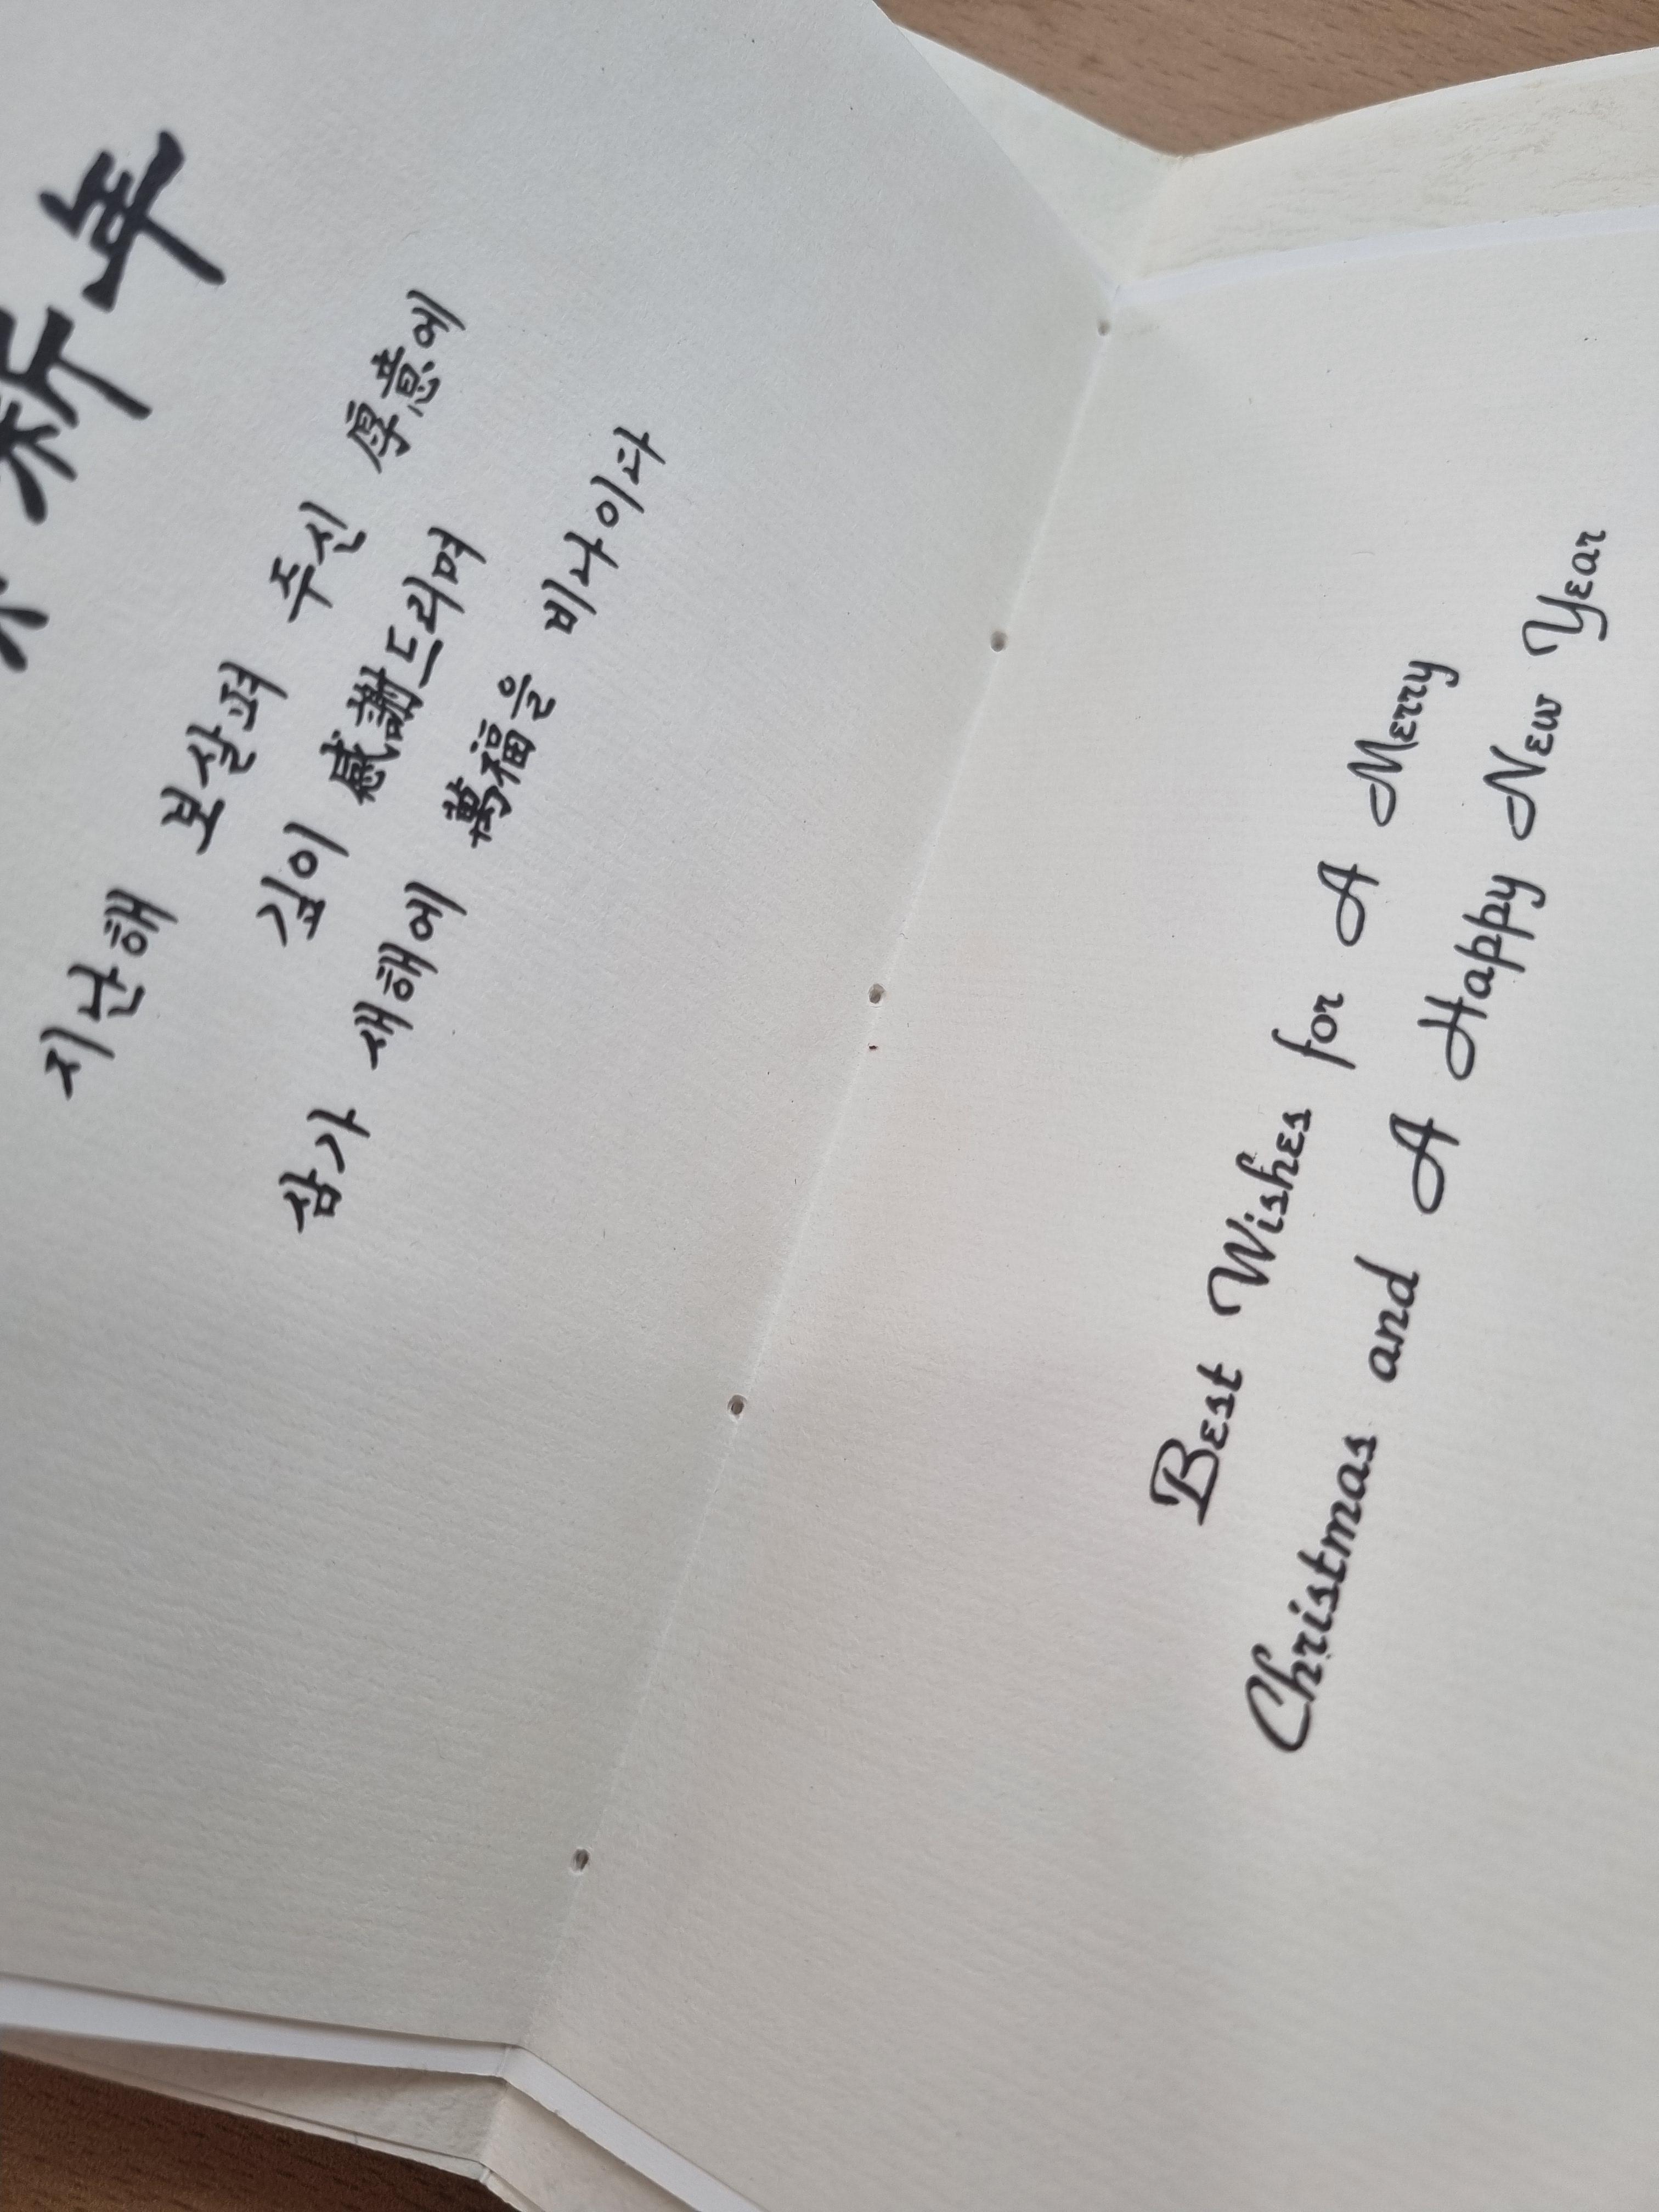 新年
지난해 보살펴 주신 厚意에
깊이 感謝드리며
삼가 새해에 萬福을 비나이다
Best Wishes for A Merry
Christmas and A Happy New Year